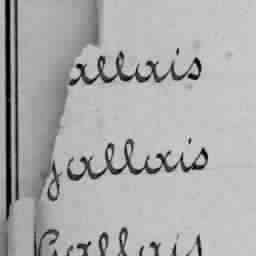 allais
jallais
Gallais